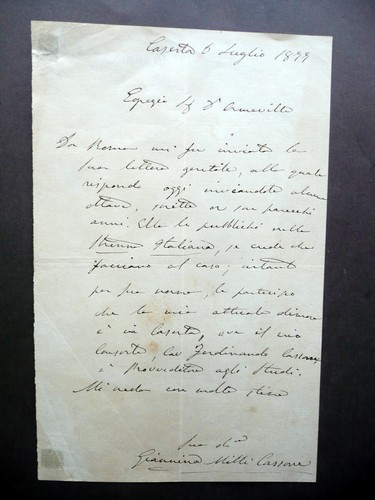 Caserta 6 Luglio 1877
Egregio Sig D'Ameville
Da Roma mi fu inviata la
sua lettera gentile, alla quale
rispondo oggi inviandole alcune
ottave, scritte or son parecchi
anni. Ella le pubblichi nella
Strenna Italiana, se crede che
facciano al caso; intanto
per sua norma, le partecipo
che la mia attuale dimora
è in Caserta, ove il mio
Consorte, Cav Ferdinando Cassone
è Provveditore agli Studi.
Mi creda con molta stima
Sua
Giannina Milli Cassone